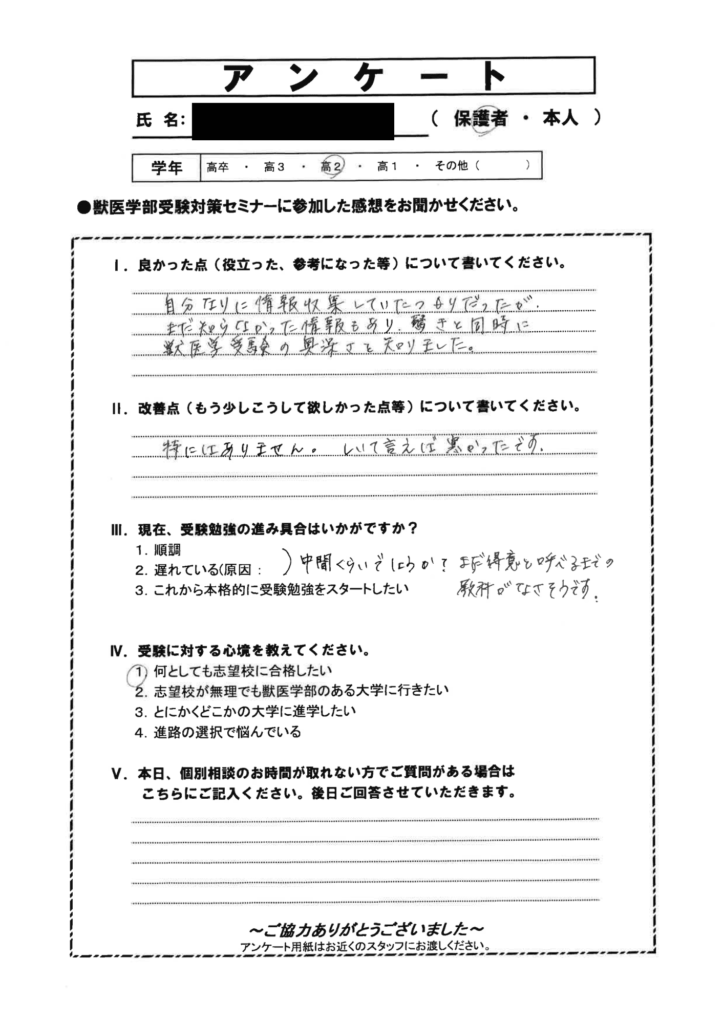 アンケート
氏 名: （ 保護者 ・ 本人 ）
学年 高卒 ・ 高3 ・ 高2 ・ 高1 ・ その他（ ）
●獣医学部受験対策セミナーに参加した感想をお聞かせください。
Ⅰ. 良かった点（役立った、参考になった等）について書いてください。
自分なりに情報収集していたつもりだったが、
まだ知らなかった情報もあり、驚きと同時に
獣医学受験の奥深さを知りました。
Ⅱ. 改善点（もう少しこうして欲しかった点等）について書いてください。
特にはありません。 しいて言えば寒かったです。
Ⅲ. 現在、受験勉強の進み具合はいかがですか？
1. 順調
2. 遅れている(原因 : ）中間くらいでしょうか？ まだ得意と呼べるまでの
3. これから本格的に受験勉強をスタートしたい 教科がなさそうです。
Ⅳ. 受験に対する心境を教えてください。
1. 何としても志望校に合格したい
2. 志望校が無理でも獣医学部のある大学に行きたい
3. とにかくどこかの大学に進学したい
4. 進路の選択で悩んでいる
Ⅴ. 本日、個別相談のお時間が取れない方でご質問がある場合は
こちらにご記入ください。後日ご回答させていただきます。
～ご協力ありがとうございました～
アンケート用紙はお近くのスタッフにお渡しください。